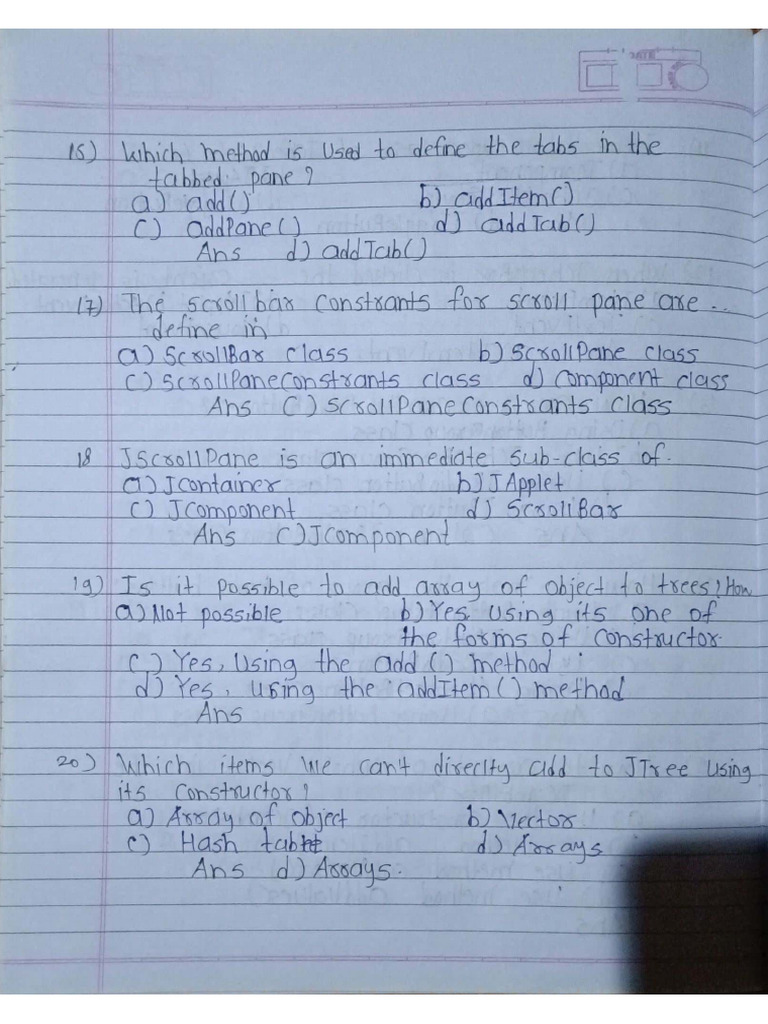 15) Which method is used to define the tabs in the
tabbed pane?
a) add() b) addItem()
c) addPane() d) addTab()
Ans d) addTab()
17) The scrollbar constrants for scroll pane are ..
define in
a) ScrollBar class b) ScrollPane class
c) ScrollPaneConstrants class d) Component class
Ans c) ScrollPaneConstrants class
18 JScrollPane is an immediate sub-class of.
a) JContainer b) JApplet
c) JComponent d) ScrollBar
Ans c) JComponent
19) Is it possible to add array of object to trees? How
a) Not possible b) Yes, using its one of
the forms of constructor.
c) Yes, Using the add() method
d) Yes, using the addItem() method
Ans
20) Which items we can't direclty add to JTree using
its constructor?
a) Array of object b) Vector
c) Hash d) Arrays
Ans d) Arrays.